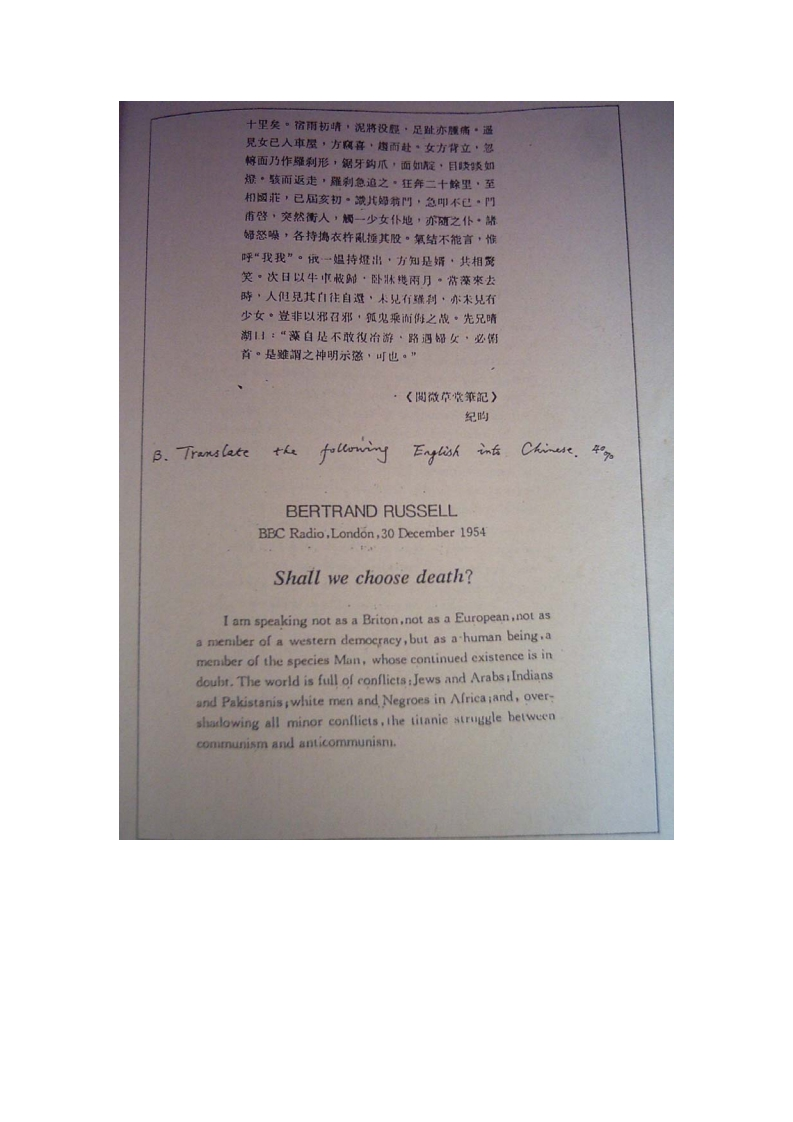 十里矣。宿雨初晴，泥將没脛，足趾亦腫痛。遥
見女已入車屋，方竊喜，趨而赴。女方背立，忽
轉面乃作羅刹形，鋸牙鈎爪，面如靛，目睒睒如
燈。駭而返走，羅刹急追之。狂奔二十餘里，至
相國莊，已屆亥初。識其婦翁門，急叩不已。門
甫啓，突然衝入，觸一少女仆地，亦隨之仆。諸
婦怒噪，各持搗衣杵亂捶其股。氣結不能言，惟
呼“我我”。俄一媪持燈出，方知是婿，共相驚
笑。次日以牛車載歸，卧牀幾兩月。當藻來去
時，人但見其自往自還，未見有羅刹，亦未見有
少女。豈非以邪召邪，狐鬼乘而侮之哉。先兄晴
湖曰：“藻自是不敢復冶游，路遇婦女，必俯
首。是雖謂之神明示懲，可也。”
《閱微草堂筆記》
纪昀
B. Translate the following English into Chinese. 40%
BERTRAND RUSSELL
BBC Radio, London, 30 December 1954
Shall we choose death?
I am speaking not as a Briton, not as a European, not as
a member of a western democracy, but as a human being, a
member of the species Man, whose continued existence is in
doubt. The world is full of conflicts: Jews and Arabs; Indians
and Pakistanis; white men and Negroes in Africa; and, over-
shadowing all minor conflicts, the titanic struggle between
communism and anticommunism.